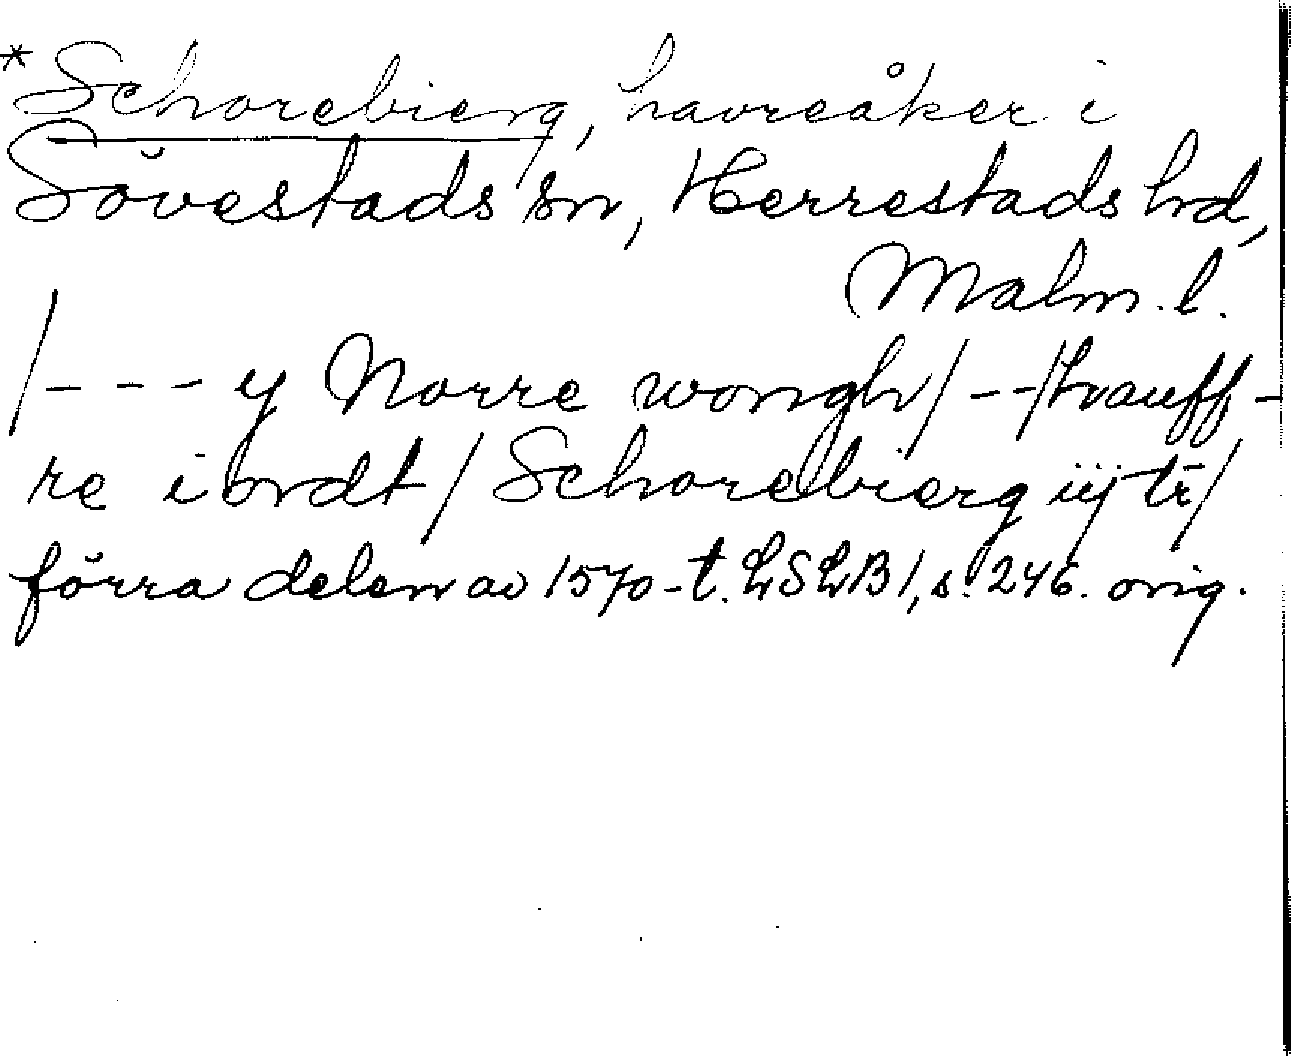 *Schorebierg, havreåker i
Sövestads sn, Herrestads hd,
Malm. l.
/- - - y Norre wongh/ - -/hauff-
re iordt/ Schorebierg iij tr/
förra delen av 1570-t. LSLB 1, s. 246. orig.